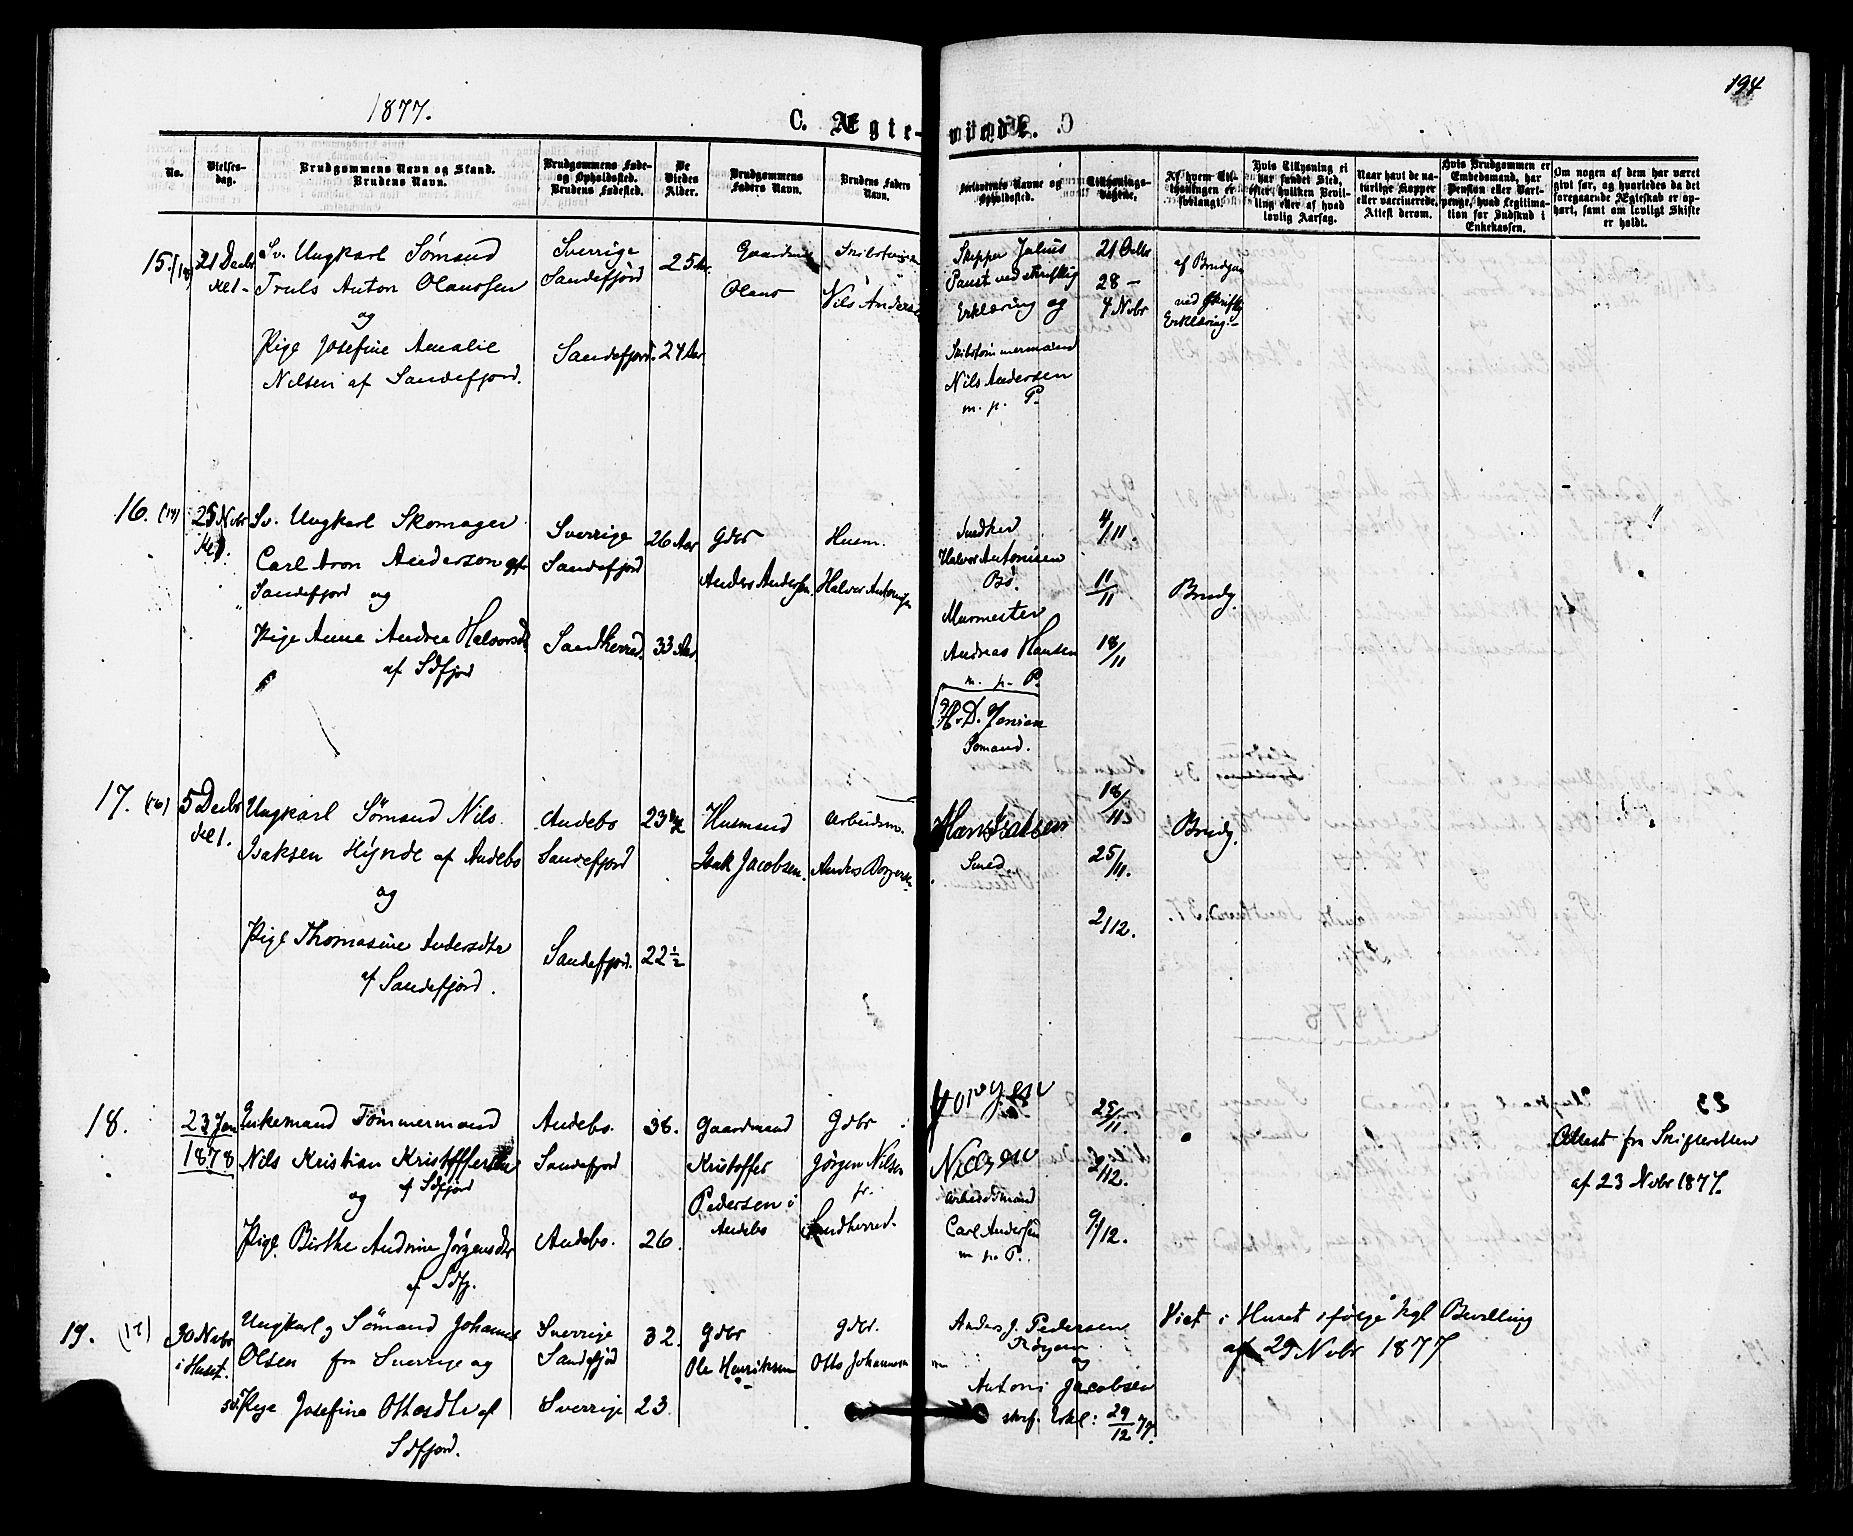 1877.
194
C. Ægte-
viede.
No.
Vielses-
dag.
Brudgommens Navn og Stand.
Brudens Navn.
Brudgommens Føde-
og Opholdsted.
Brudens Fødested.
De
Viedes
Alder.
Brudgommens
Faders Navn.
Brudens Faders
Navn.
Forlovernes Navne og
Opholdssted.
Tillysnings-
dagene.
Af hvem Til-
lysningen er
forlangt.
Hvis Tillysning ei
har fundet Sted,
efter hvilken Bevil-
ling eller af hvad
lovlig Aarsag.
Naar havt de na-
turlige Kopper
eller vaccinerede.
Attest derom.
Hvis Brudgommen er
Embedsmand, har
Pension eller Vart-
penge, hvad Legitima-
tion for Indskud i
Enkekassen.
Om nogen af dem har været
givt før, og hvorledes da det
foregaaende Ægteskab er op-
hørt, samt om lovligt Skifte
er holdt.
15.
21 Decbr
Kl 1 -
Sv. Ungkarl Sømand
Truls Anton Olaussen
og
Pige Josefine Amalie
Nilsen af Sandefjord.
Sverrige
Sandefjord
Sandefjord.
25 Aar
24 Aar
Gaardmd
Olaus
Nils Andersen
Skipper Julius
Paust ved skriftlig
Erklæring og
Skibstømmermand
Nils Andersen
m. p. P.
21 Octbr
28 -
4 Nvbr
af Brudgom
ved skriftlig
Erklæring. -
16. (14)
25 Nvbr
Kl 1.
Sv. Ungkarl Skomager
Carl Aron Anderson af
Sandefjord og
Pige Anne Andrea Halvorsdtr
af Sdfjord
Sverrige
Sandefjord
Sandherred.
26 Aar
33 Aar
Gdbr
Anders Andersen
Husm.
Halvor Antonsen
Snedker
Halvor Antonisen
Bø.
Murmester
Andreas Hansen
m. p. P.
H. D. Jensen
Sømand.
4/11.
11/11
18/11
Brudg.
17. (16)
5 Decbr
Kl 1.
Ungkarl Sømand Nils
Isaksen Hynde af Andebo
og
Pige Thomasine Andersdtr
af Sandefjord.
Andebo
Sandefjord
Sandefjord.
23 1/2
22 1/2
Husmand
Isak Jacobsen.
Arbeidsm.
Hans Isaksen
Smed.
18/11.
25/11.
2/12.
Brudg.
18.
23 Jan
1878
Enkemand Tømmermand
Nils Kristian Kristoffersen
af Sdfjord
og
Pige Birthe Andrine Jørgensdtr
af Sdfj.
Andebo.
Sandefjord
Andebo.
36.
26.
Gaardmand
Kristoffer
Pedersen i
Andebo
Gdbr
Jørgen Nilsen
fr.
Sandherred.
Jørgen
Nielsen
Arbeidsmand
Carl Andersen
m. p. P.
25/11.
2/12.
9/12.
Attest fra Skifteretten
af 23 Nvbr 1877.
19. (17)
30 Nvbr
i Huset.
Ungkarl og Sømand Johannes
Olsen fra Sverrige og
Pige Josefine Ottosdtr af
Sdfjord.
Sverrige
Sandefjord
Sverrige
32.
23.
Gdbr
Ole Henriksen
Gdbr.
Otto Johannesen
Anders J. Pedersen
og
Anton Jacobsen
skrf. Erkl: 29/12 77.
Viet i Huset ifølge kgl Bevilling
af 29 Nvbr 1877